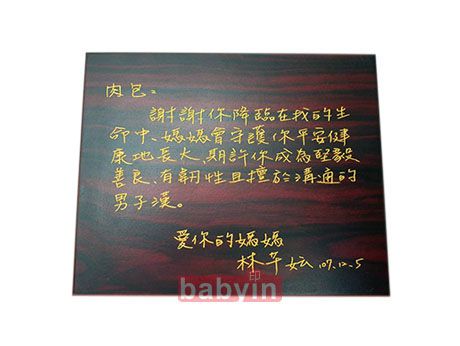 肉包：
謝謝你降臨在我的生
命中、媽媽會守護你平安健
康地長大,期許你成為堅毅
善良、有韌性且擅於溝通的
男子漢。
愛你的媽媽
林芊妘 107.12.5
印
babyin